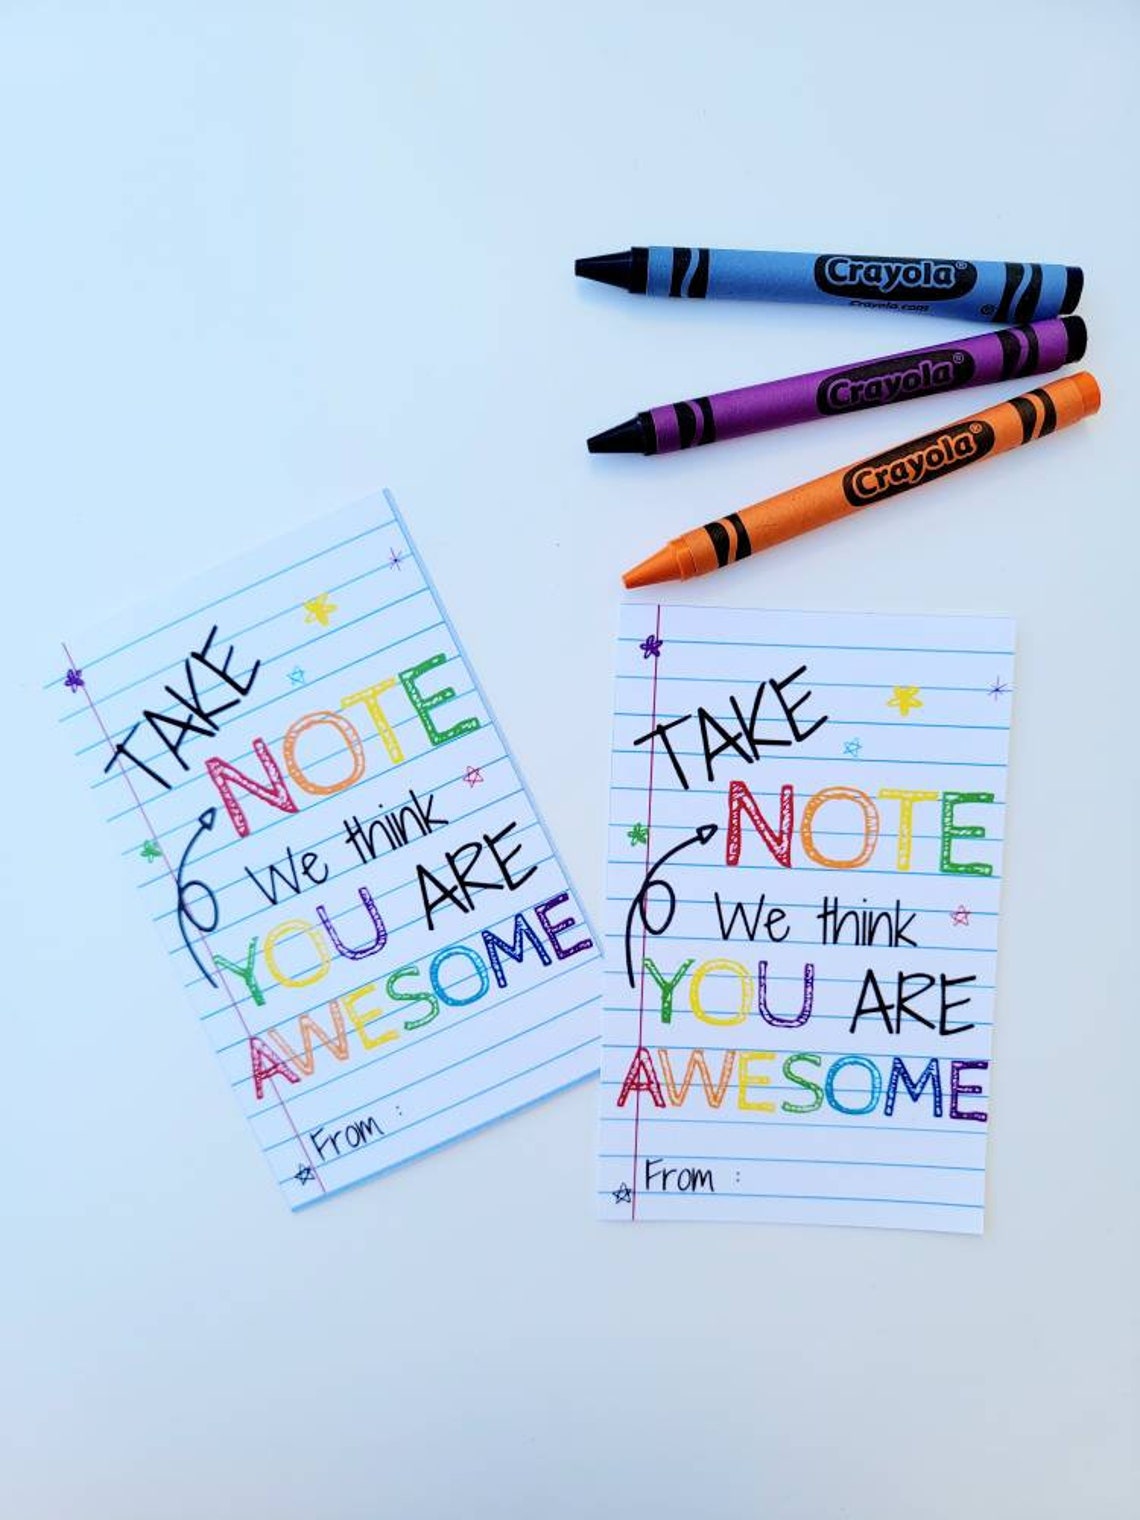 Crayola®
Crayola.com
Crayola®
Crayola®
TAKE
NOTE
We think
YOU ARE
AWESOME
From :
TAKE
NOTE
We think
YOU ARE
AWESOME
From :